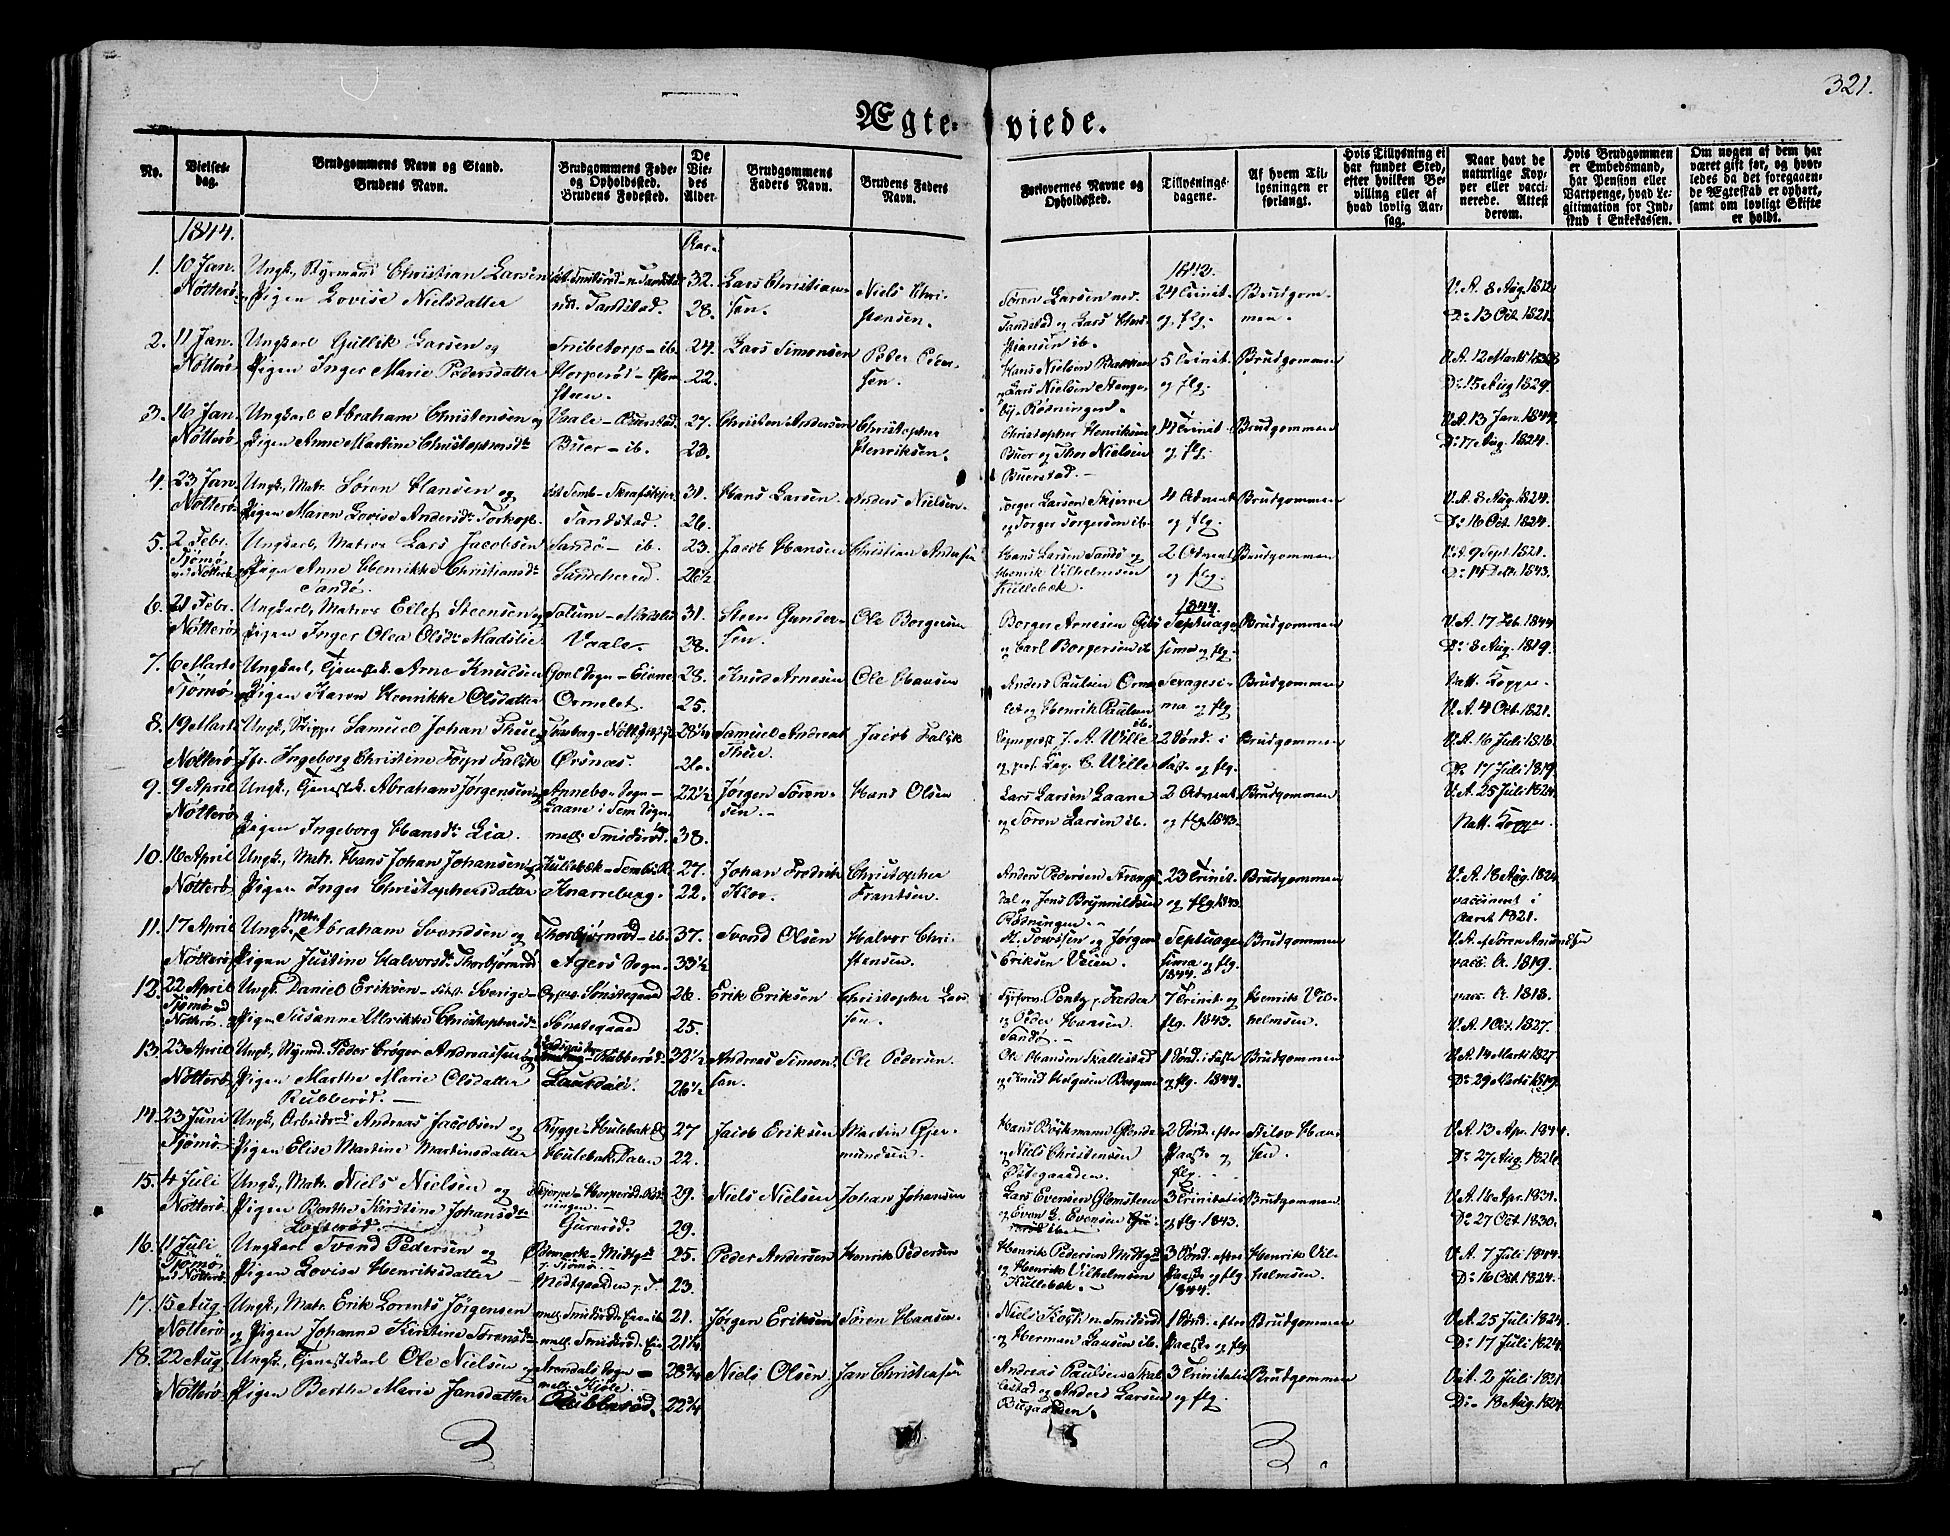 321.
Ægte- viede.
No.
Vielses-
dag.
Brudgommens Navn og Stand.
Brudens Navn.
Brudgommens Føde-
og Opholdssted.
Brudens Fødested.
De
Vie-
des
Alder
Brudgommens
Faders Navn.
Brudens Faders
Navn.
Forlovernes Navne og
Opholdssted.
Tillysnings-
dagene.
Af hvem Til-
lysningen er
forlangt.
Hvis Tillysning ei
har fundet Sted,
efter hvilken Be-
villing eller af
hvad lovlig Aar-
sag.
Naar havt de
naturlige Kop-
per eller vacci-
nerede. Attest
derom.
Hvis Brudgommen
er Embedsmand,
har Pension eller
Vartpenge, hvad Le-
gitimation for Ind-
skud i Enkekassen.
Om nogen af dem har
været gift før, og hvor-
ledes da det foregaaen-
de Ægteskab er ophørt,
samt om lovligt Skifte
er holdt.
1844.
Aar.
1. 10 Jan. Ungk., Styrmand Christian Larsen 32. Lars Christian- Niels Chri- 1843.
Nøtterø Pigen Lovise Nielsdatter Tandstad. 28. sen. stensen. Søren Larsen 24 Trinit. Brudgom- V.A. 8 Aug. 1812
Tandstad og Lars Chri- og flg. men. Do 13 Oct. 1821.
stiansen ib.
2. 11 Jan. Ungkarl Gullik Larsen og ib. 24. Lars Simonsen Peder Peder- Hans Nielsen Bakken 5 Trinit. Brudgommen V.A. 12 Marts
Nøtterø Pigen Inger Marie Pedersdatter 22. sen. Lars Nielsen og flg. Do 15 Aug 1829.
3. 16 Jan. Ungkarl Abraham Christensen og Vaale - Buerstad. 27. Christen Andersen Christopher Christopher Henriksen Trinit. Brudgommen V.A. 13 Jan. 1844.
Nøtterø Pigen Anne Martine Christophersdr Buer - ib. 23. Henriksen. Buer og Thor Nielsen og flg. Do 17 Aug. 1824.
Buerstad. -
4. 23 Jan. Ungk., Matr. Søren Hansen og 31. Hans Larsen. Anders Nielsen. Larsen Skjerve 4 Advent Brudgommen V.A. 8 Aug. 1824.
Nøtterø Pigen Maren Lovise Andersdr Torkop. Tandstad. 26. og Torger Torgersen ib. og flg. Do 16 Oct. 1824.
5. 2 Febr. Ungkarl, Matros Lars Jacobsen Sandø - ib. 23. Jacob Hansen Christian Andersen Hans Larsen Sandø og 2 Advent Brudgommen V.A. 9 Sept. 1821.
Tjømø Pigen Anne Henrikke Christiansdr Sandeherred. 26½ Henrik Vilhelmsen og flg. Do 14 1843.
Nøtterø Sandø. Hullebæk.
6. 21 Febr. Ungkarl, Matros Eilef Steensen og Solum - 31. Steen Gunder- Ole Borgersen 1844.
Nøtterø Pigen Inger Olea Olsdr Vaale. 28. sen. Borger Arnesen Septuage- Brudgommen V.A. 17 Feb. 1844
og Carl Borgersen ib. sima og flg. Do 8 Aug. 1819.
7. 6 Marts Ungkarl, Tjenestek. Arne Knudsen Sogn - 28. Knud Arnesen Ole Hansen Anders Paulsen Orme- Sexagesi- Brudgommen Natt. Kopper
Tjømø Pigen Karen Henrikke Olsdatter Ormelet. 25. let og Henrik Paulsen ib. ma og flg V.A. 4 Oct. 1821.
8. 19 Marts Ungk., Skipper Samuel Johan Thue Tønsberg - 28½ Samuel Andreas Jacob Falck J. A. Wille 2 Sønd. i Brudgommen V.A. 16 Juli 1816
Nøtterø Jfr. Ingeborg Christine Falck Ørsnæs. 26. Thue. og C. Wille Faste og flg. Do 17 Juli 1819.
9. 9 April Ungk., Tjenestek. Abraham Jørgensen Annebo Sogn - 22½ Jørgen Søren- Hans Olsen Lars Larsen Gaane 2 Advent Brudgommen V.A. 25 Juli 1824.
Nøtterø Gaane i Sem Sogn. sen. - og Søren Larsen ib. og flg. 1843. Natt. Kopper
Pigen Ingeborg Hansdr Lia. mell. Smidsrød. 38.
10. 16 April Ungk., Matr. Hans Johan Johansen Hullebæk 27. Johan Fredrik Christopher Anders Pedersen 23 Trinit. Brudgommen V.A. 18 Aug. 1824
Nøtterø Pigen Inger Christophersdatter Knarreberg. 22. Klov. Frantsen. dal og Jens Brynnildsen og flg. 1843. vaccineret i
Røsningen. - Aaret 1821.
11. 17 April Ungk., Matr. Abraham Svendsen og Thorbjørnrød - ib. 37. Svend Olsen Halvor Chri- og Jørgen Septuage- Brudgommen V.A. af Søren Amundsen
Nøtterø Pigen Justine Halvorsdr Thorbjørnrød Agers Sogn. 33½ stensen. Eriksen Veien. sima og flg. vacc. A. 1819.
1844.
12. 22 April Ungk. Daniel Eriksen - Sverige Sønstegaard 26. Erik Eriksen Christopher Lar- 7 Trinit. og Henrik Vil- vacc. A. 1818.
Tjømø og Nøtterø Pigen Susanne Ulrikke Christophersdr Sønstegaard 25. sen. og Peder Hansen flg. 1843. helmsen. V.A. 1 Oct. 1827.
Sandø. -
13. 23 April Ungk., Stymd. Peder Crøger Andreassen Rubberød. 32½ Andreas Simon- Ole Pedersen. Ole Hansen Skallestad 1 Sønd. i Faste Brudgommen V.A. 14 Marts 1827.
Nøtterø Pigen Marthe Marie Olsdatter 26½ sen. og Knud Holgersen Borgen og flg. 1844. Do 29 Marts 1819.
Rubberød. -
14. 23 Juni Ungk., Arbeidsmd Andreas Jacobsen og Rygge - Hulebak 27 Jacob Eriksen Martin Gjer- Hans Bockmann 2 Sønd. efter Han- V.A. 13 Apr. 1844.
Tjømø Pigen Elise Martine Martinsdatter Hulebak 22. mundsen. og Niels Christensen Paaske og sen. Do 27 Aug. 1826.
Østegaarden. flg. -
15. 4 Juli Ungk., Matr. Niels Nielsen og 29. Niels Nielsen Johan Johansen Lars Evensen Glomsteen 3 Trinitatis Brudgommen V.A. 18 Apr. 1831.
Nøtterø Pigen Berthe Kirstine Johansdr ningen. - og Even E. Evensen og flg. 1843. Do 27 Oct. 1830.
Lofterød. 29.
16. 11 Juli Ungkarl Svend Pedersen og 25. Peder Andersen Henrik Pedersen Henrik Pedersen 3 Sønd. efter Henrik Vil- V.A. 7 Juli 1844.
Tjømø Pigen Lovise Henriksdatter Midtgaarden p. T. 23. og Henrik Vilhelmsen Paaske og flg. helmsen. Do 16 Oct. 1824.
og Nøtterø Hullebæk. - 1844.
17. 15 Aug. Ungk., Matr. Erik Lorents Jørgensen mell. Smidsrød. 21. Jørgen Eriksen Søren Hansen. Niels Smidsrød 1 Sønd. efter Brudgommen V.A. 25 Juli 1824.
Nøtterø og Pigen Johanne Kirstine Sørensdr mell. Smidsrød. 21¼ og Herman Larsen ib. Paaske og flg. Do 17 Juli 1824.
18. 22 Aug. Ungk., Tjenestekarl Ole Nielsen og Arendals Sogn - 28¾ Niels Olsen Jan Christensen Andreas Paulsen Skal- 3 Trinitatis Brudgommen V.A. 2 Juli 1831
Nøtterø Pigen Berthe Marie Jansdatter Rubberød. 22¾ lestad og Anders Larsen og flg. Do 18 Aug. 1824.